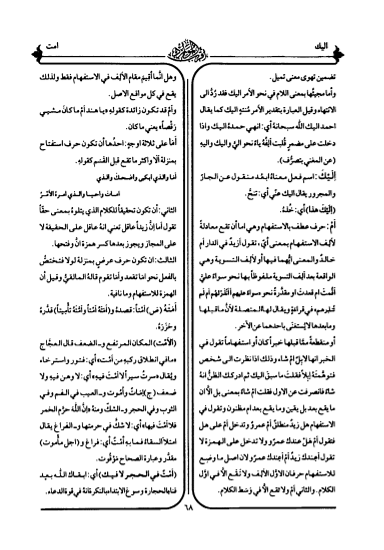 اليك
امت
تضمين تهوى معنى تميل.
وأما مجيئها بمعنى اللام في نحو الأمر اليك فقد رُدَّ الى
الانتهاء وقيل العبارة بتقدير الأمر مُنتهٍ اليك كما يقال
احمد اليك اللّٰه سبحانه أي: انهي حمدهُ اليك واذا
دخلت على مضمرٍ قُلبت الفهُ ياءً نحو اليَّ واليك واليهِ
(عن المغني بتصرُّف).
إلَيْكَ: اسم فعل معناهُ ابعُد منقول عن الجارّ
والمجرور يقال اليك عني أي: تنحَّ.
(إلَيْكَ هذا) أي: خُذْهُ.
أمْ: حرف عطف بالاستفهام وهي اما أن تقع معادلةً
لألف الاستفهام بمعنى أيّ، تقول أزيدٌ في الدار أم
خالدٌ والمعنى أيُّهما فيها أو لألف التسوية وهي
الواقعة بعد ألف التسوية ملفوظاً بها نحو سواءٌ عليَّ
أقمت ام قعدت او مقدَّرة نحو سواءٌ عليهم أنْذَرْتَهُم أم لم
تُنذِرهم، في قراءةٍ ويقال لها المتصلة لأنَّ ما قبلها
وما بعدها لا يُستغنى باحدهما عن الآخر.
أو منقطعةً ممَّا قبلها خبراً كان أو استفهاماً تقول في
الخبر انها لإبلٌ امْ شاءٌ وذلك اذا نظرت الى شخصٍ
فتوهَّمتَهُ إبلاً فقلت ما سبق اليك ثم ادركك الظنُّ انهُ
شاءٌ فانصرفت عن الاول فقلت امْ شاءٌ بمعنى بل الَّا ان
ما يقع بعد بل يقين وما يقع بعد ام مظنون وتقول في
الاستفهام هل زيدٌ منطلقٌ امْ عمروٌ وتدخل أمْ على هل
فتقول أم هلْ عندك عمروٌ ولا تدخل على الهمزة لا
تقول أعندك زيدٌ أم أعندك عمروٌ لان اصل ما وضع
للاستفهام حرفان الاوَّل الألف ولا تقع الَّا في اوَّل
الكلام. والثاني أمْ ولا تقع الَّا في وسط الكلام.
وهل انَّما أُقيمَ مقام الألف في الاستفهام فقط ولذلك
يقع في كل مواقع الاصل.
وأمْ قد تكون زائدة كقولهِ «يا هند امْ ما كان مشيي
رَقَصاً» يعني ما كان.
أمَا على ثلاثة اوجهٍ: احدها أن تكون حرف استفتاح
بمنزلة ألا واكثر ما تقع قبل القسم كقولهِ.
أما والذي ابكى واضحكَ والذي
امات واحيا والذي امرهُ الأمْرُ
الثاني: أن تكون تحقيقاً للكلام الذي يتلوهُ بمعنى حقّاً
تقول أمَا إنَّ زيداً عاقل تعني انهُ عاقل على الحقيقة لا
على المجاز ويجوز بعدها كسر همزة انَّ وفتحها.
الثالث: ان تكون حرف عرض بمنزلة لولا فتختصُّ
بالفعل نحو اما تقعد واما تقوم قالهُ المالقي وقيل أن
الهمزة للاستفهام وما نافية.
أمَتَهُ (ض) أمْتاً: قصدهُ و(أمَتَهُ أمْتاً وأمَّتَهُ تأميتاً) قدَّرهُ
وحَزَرَهُ.
(الأمْت) المكان المرتفع و-الضعف قال العجَّاج
«ما في انطلاق ركبهِ من أمْت» أي: فتور واسترخاء
ويقال «سرتُ سيراً لا أمْتَ فيهِ» أي: لا وهن فيهِ ولا
ضعف (ج) إمَاتٌ وأُموتٌ و-العيب في الفم وفي
الثوب وفي الحجر و-الشكّ ومنهُ «إنَّ اللّٰهَ حرَّم الخمر
فلا أمْتَ فيها» أي: لا شكَّ في حرمتها و-الفراغ يقال
امتلأ السقاءُ فما بهِ أمْت أي: فراغ و(اجل مأموت)
مقدَّر وعبارة الصحاح موقوت.
(أمْتٌ في الحجر لا فيك) أي: ابقاك اللّٰه بعد
فناء الحجارة وسوغ الابتداء بالنكرة انهُ في قوة الدعاء.
٦٨